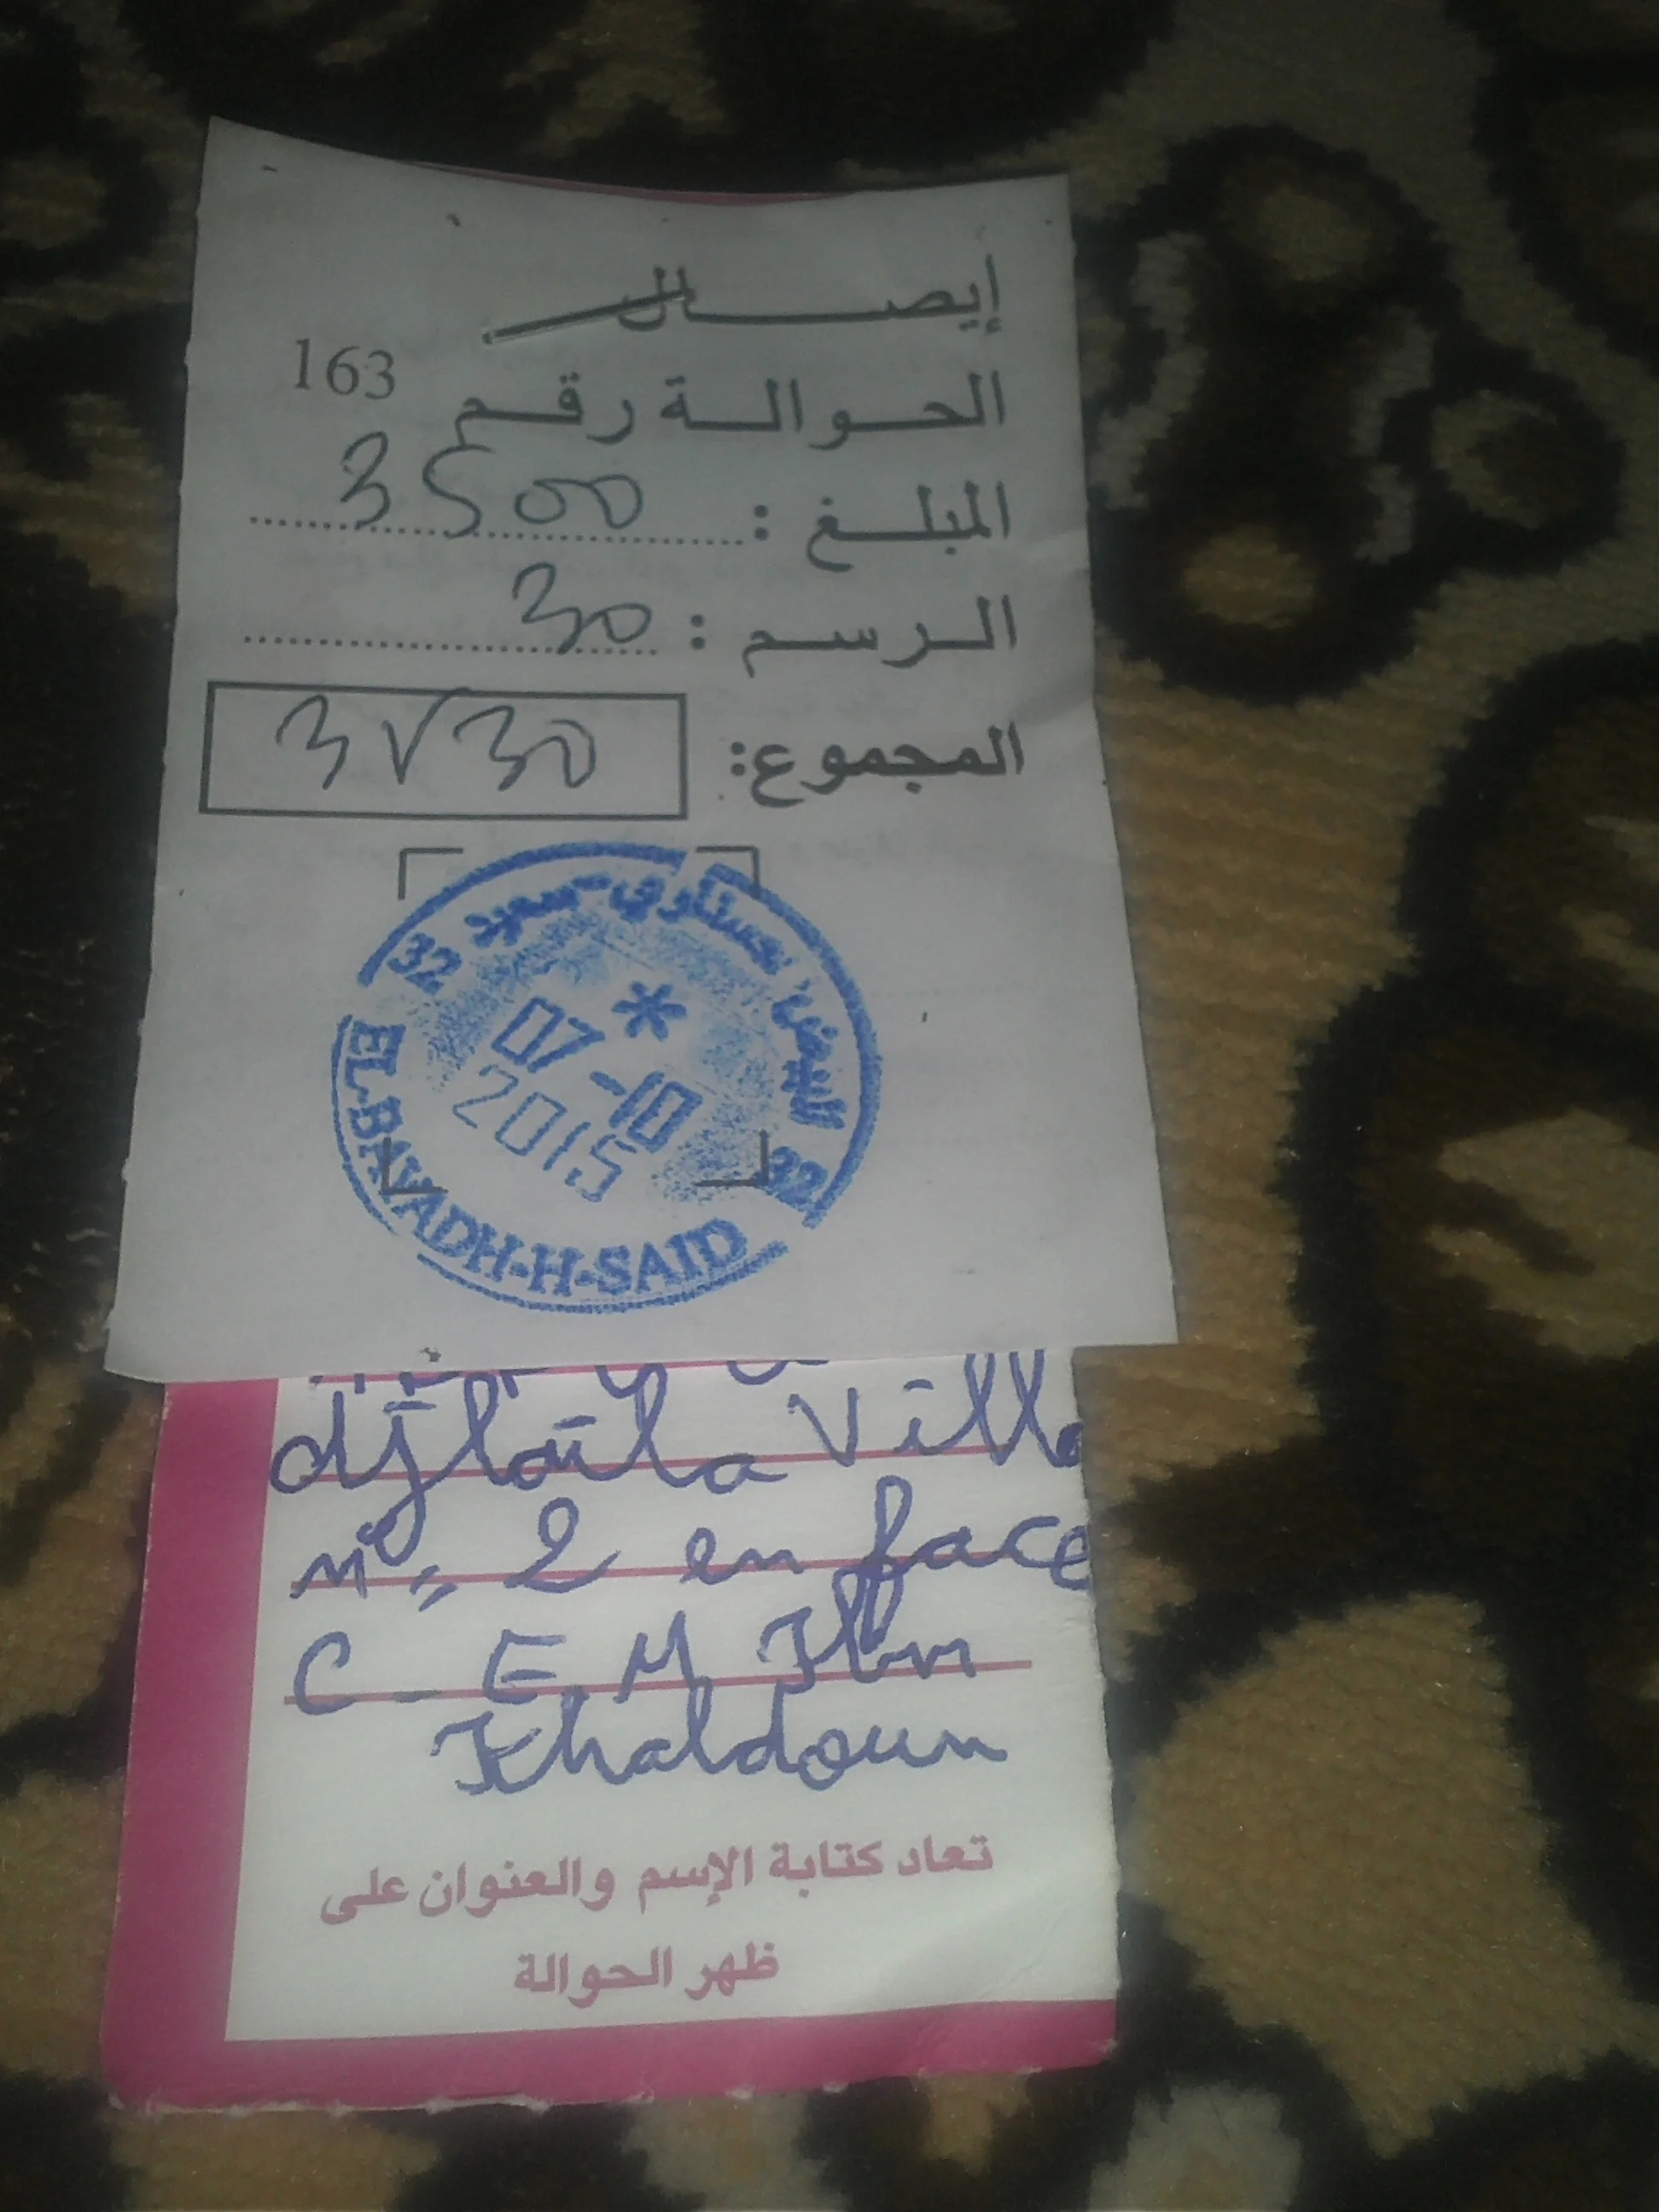 إيصال
الحوالة رقم 163
المبلغ : 3500
الرسم : 30
المجموع: 3V30
البيض حستاوي-سعيد
32
*
07-10
2015
32
EL-BAYADH-H-SAID
djlaïla Villa
n° 2 en face
C_E.M Ibn
Khaldoun
تعاد كتابة الإسم والعنوان على
ظهر الحوالة